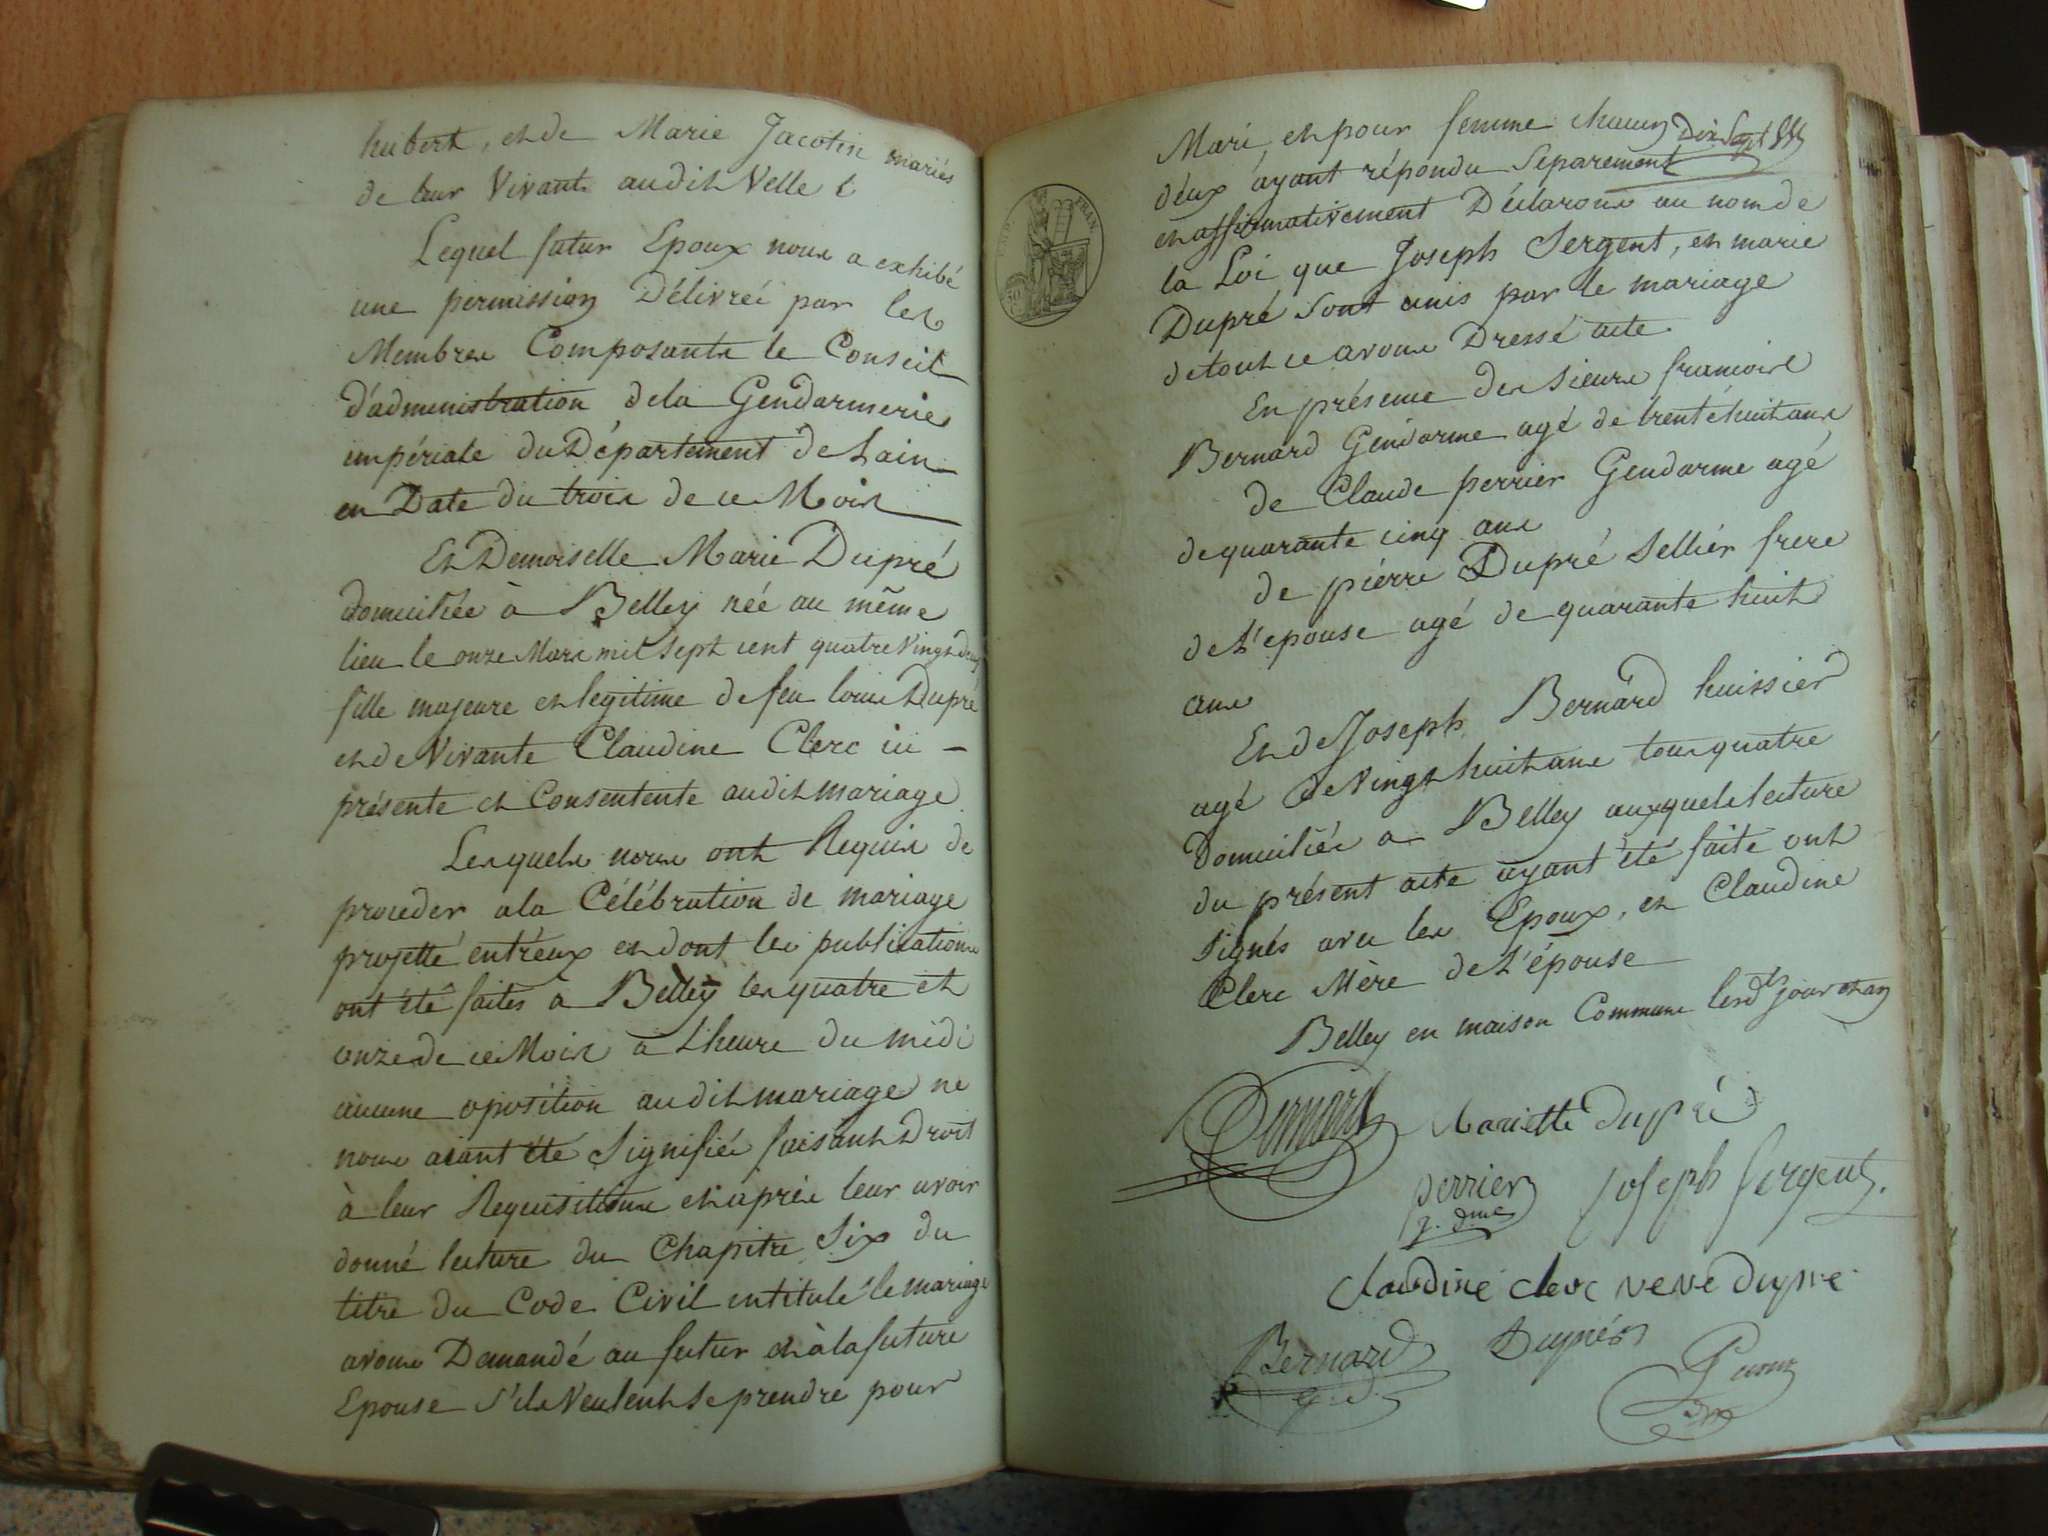 hubert, et de Marie Jacotin mariés
de leur Vivants audit Velle
Lequel futur Epoux nous a exhibé
une permission Délivrée par les
Membres Composants le Conseil
d'administration dela Gendarmerie
impériale du Département de Lain
en Date du trois de ce Mois
Et Demoiselle Marie Dupré
domiciliée à Belley née au même
lieu le onze Mars mil sept cent quatre Vingt deux
fille majeure et legitime de feu louis Dupré
et de Vivante Claudine Clerc ici
présente et Consentente audit mariage
Lesquels nous ont Requis de
proceder ala Célébration de mariage
projetté entréux et dont les publications
ont été faites à Belley les quatre et
onze de ce Mois à L'heure du midi
aucune oposition audit mariage ne
nous aiant été Signifiée faisant Droit
à leur Requisitions et après leur avoir
donné lecture du Chapitre Six du
titre du Code Civil intitulé le mariage
avons Demandé au futur et à la future
Epouse s'ils Veulent se prendre pour
Mari, et pour femme chacun Dix Sept
déux ayant répondu Séparement
et affirmativement Déclarons au nom de
la Loi que Joseph Sergent, et marie
Dupré sont unis par le mariage
de tout ce avons Dressé acte
En présence des sieurs francois
Bernard Gendarme agé de trenté huit ans
de Claude perrier Gendarme agé
de quarante cinq ans
de pierre Dupré Sellier frere
de L'epouse agé de quarante huit
ans
Et de Joseph Bernard huissier
agé de Vingt huit ans tous quatre
Domiciliés a Belley auxquels lecture
du présent acte ayant été faite ont
signés avec les Epoux, et Claudine
Clerc Mère de L'épouse
Belley en maison Commune lesdts jour et an
Bernard Mariette dupré
perrier Joseph Sergent.
g. dme
claudine clerc veve dupre
Bernard Dupré